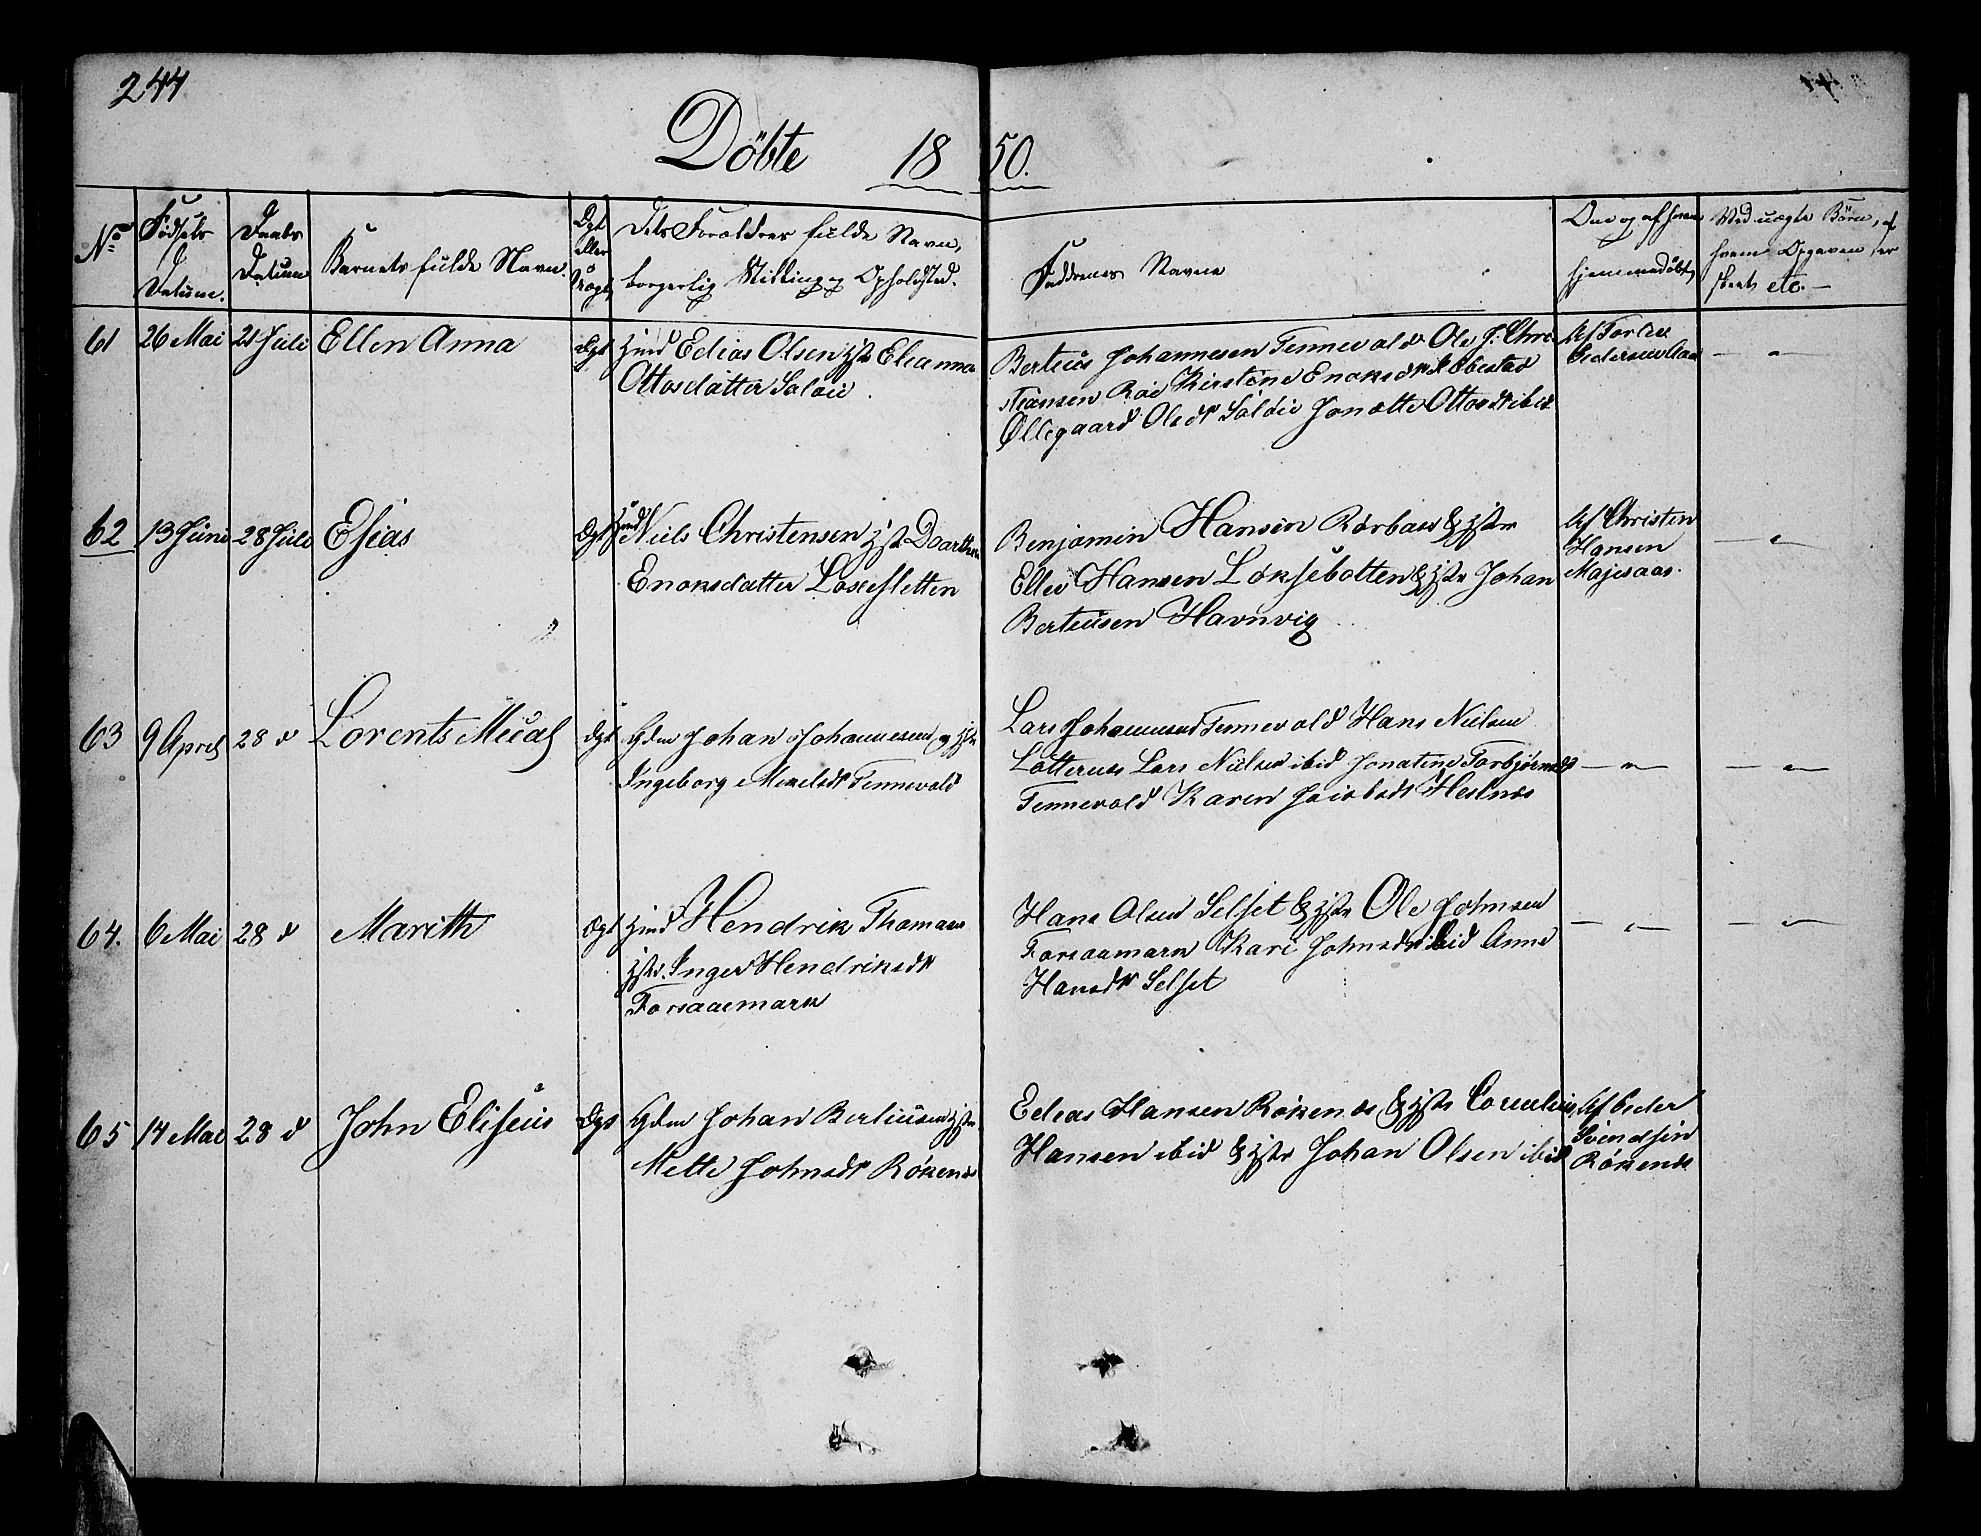 244
Döbte 18 50.
No
Fødsels Datum.
Daabs Datum
Barnets fulde Navn.
Ægt eller Uægt
Dets Forældres fulde Navn,
borgerlig Stilling og Opholdsted.
Faddernes Navne
Om og af hvem
hjemmedøbt,
Ved uægte Børn, af
hvem Opgaven er
skeet etc. —
61 26 Mai 21 Juli Ellen Anna Ægt Edias Olsen Eleanna
Ottosdatter Saløie
Berteus Johannesen Tennevold Ole J. Chri
stiansen Røe Kirstine Enoksdr Ebestad
Øllegaard Olsdr Saløie Jonætte Ottosdr ibid
Af Torber
Pedersen Aan
62 13 Juni 28 Juli Esias Ægt Niels Christensen Doarthea
Enoksdatter Løxesletten
Benjamin Hansen Rørbak &
Eller Hansen Løksebotten & Johan
Berteusen Havnvig
Af Christen
Hansen
Majesaas.
63 9 April 28 d Lorents Micael Ægt Gdm Johan Johannesen og
Ingeborg Mikelsdr Tennevold
Lars Johannesen Tennevold Hans Nielsen
Løtternes Lars Nielsen ibid Jonatine Torbjørnsdr
Tennevold Karen Jacobsdr Hesknes
64. 6 Mai 28 d Marith Ægt Hendrik Thomasen
Inger Hendriksdr
Forsaaemarn
Hans Olsen Selset & Ole Johnsen
Forsaamarn Kari Johnsdr ibid Anne
Hansdr Selset
65 14 Mai 28 d John Eliseus Ægt Gdm Johan Berteusen
Mette Johnsdr Røkenes
Edias Hansen Røkenes & Cornelius
Hansen ibid & Johan Olsen ibid
Af Peder
Svendsen
Røkenes